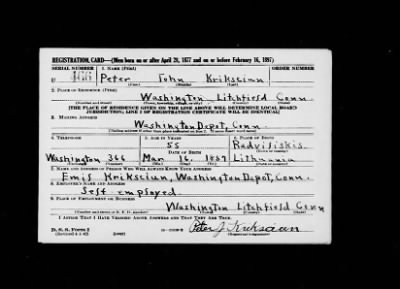 REGISTRATION CARD—(Men born on or after April 28, 1877 and on or before February 16, 1897)
SERIAL NUMBER 1. NAME (Print) ORDER NUMBER
U Peter John Krikscian
(First) (Middle) (Last)
2. PLACE OF RESIDENCE (Print)
Washington Litchfield Conn.
(Number and street) (Town, township, village, or city) (County) (State)
[THE PLACE OF RESIDENCE GIVEN ON THE LINE ABOVE WILL DETERMINE LOCAL BOARD
JURISDICTION; LINE 2 OF REGISTRATION CERTIFICATE WILL BE IDENTICAL]
3. MAILING ADDRESS
Washington Depot, Conn.
[Mailing address if other than place indicated on line 2. If same insert word same]
4. TELEPHONE 5. AGE IN YEARS 6. PLACE OF BIRTH
55 Radvisiskis
DATE OF BIRTH (Town or county)
Washington 366 Mar. 16. 1887 Lithuania
(Exchange) (Number) (Mo.) (Day) (Yr.) (State or country)
7. NAME AND ADDRESS OF PERSON WHO WILL ALWAYS KNOW YOUR ADDRESS
Emis Krikscian, Washington Depot, Conn.
8. EMPLOYER'S NAME AND ADDRESS
Self employed.
9. PLACE OF EMPLOYMENT OR BUSINESS
Washington Litchfield Conn
(Number and street or R. F. D. number) (Town) (County) (State)
I AFFIRM THAT I HAVE VERIFIED ABOVE ANSWERS AND THAT THEY ARE TRUE.
D. S. S. Form 1
(Revised 4-1-42) (over) Peter J. Krikscian
(Registrant's signature)